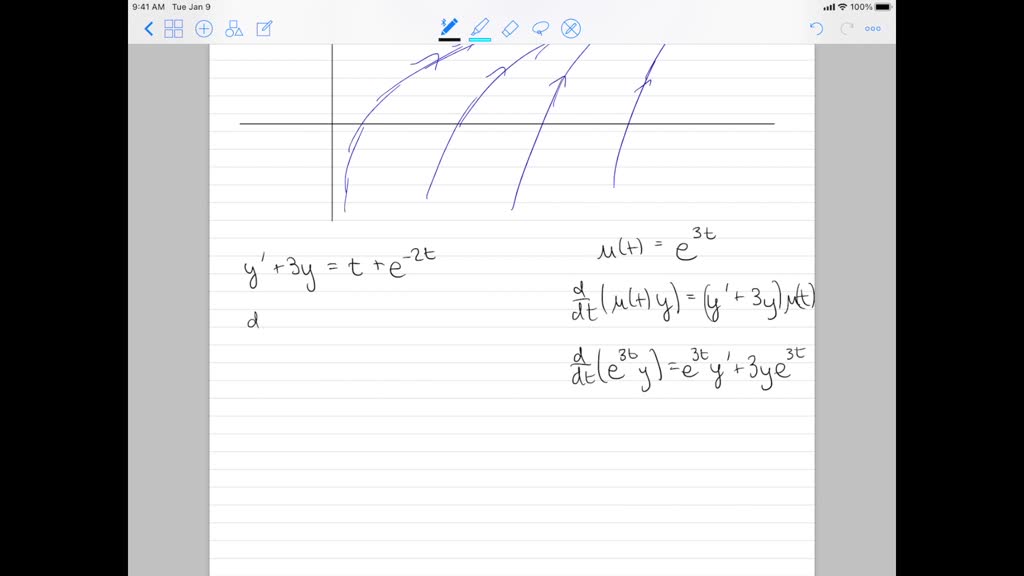 9:41 AM Tue Jan 9
100%
μ(t) = e^{3t}
y' + 3y = t + e^{-2t}
d/dt (μ(t) y) = (y' + 3y) μ(t)
d
d/dt (e^{3t} y) = e^{3t} y' + 3y e^{3t}